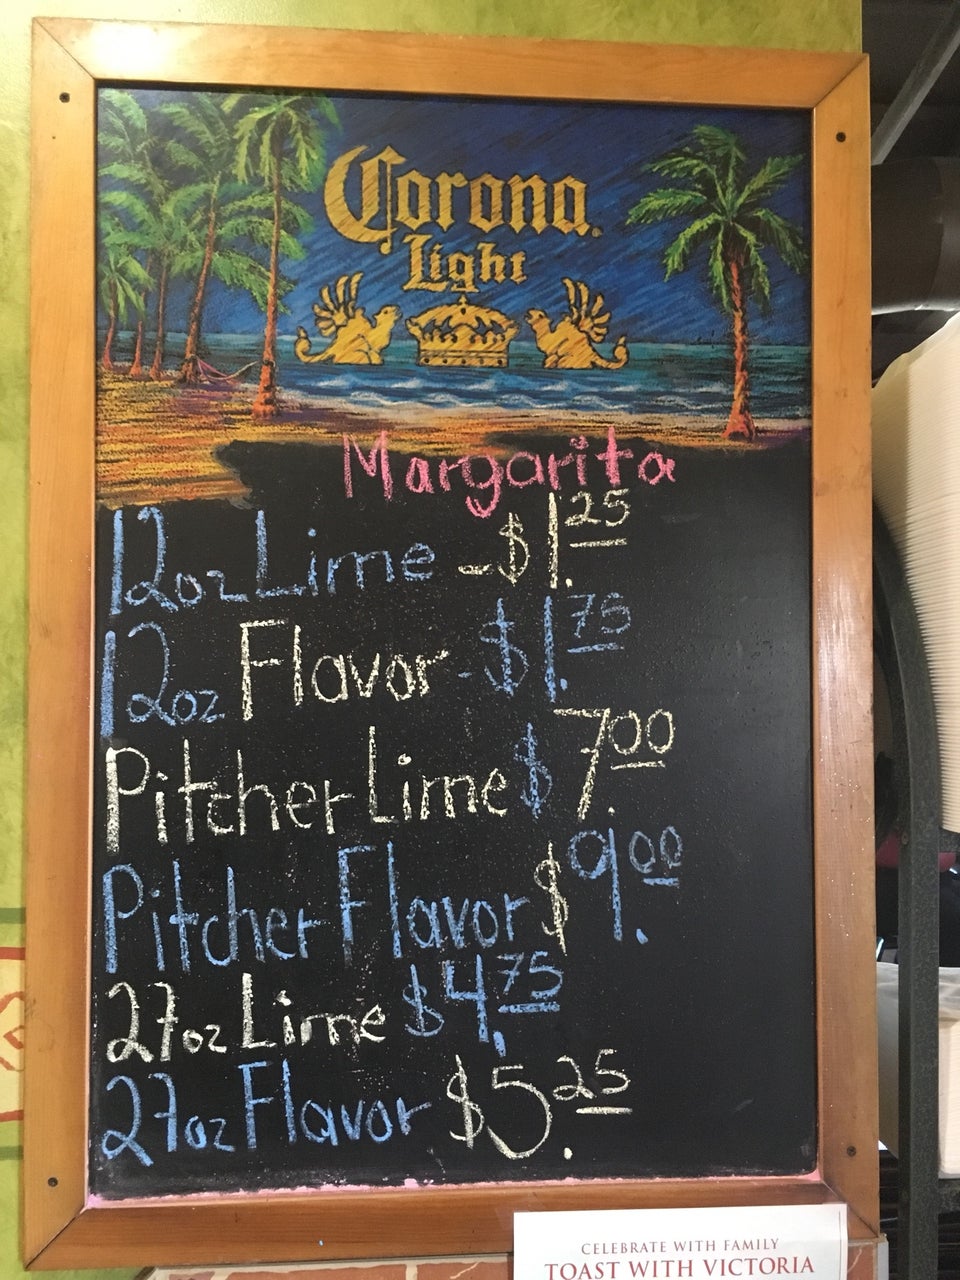 Corona
Light
Margarita
12oz Lime -$1.25
12oz Flavor -$1.75
Pitcher Lime $7.00
Pitcher Flavor $9.00
27oz Lime $4.75
27oz Flavor $5.25
CELEBRATE WITH FAMILY
TOAST WITH VICTORIA